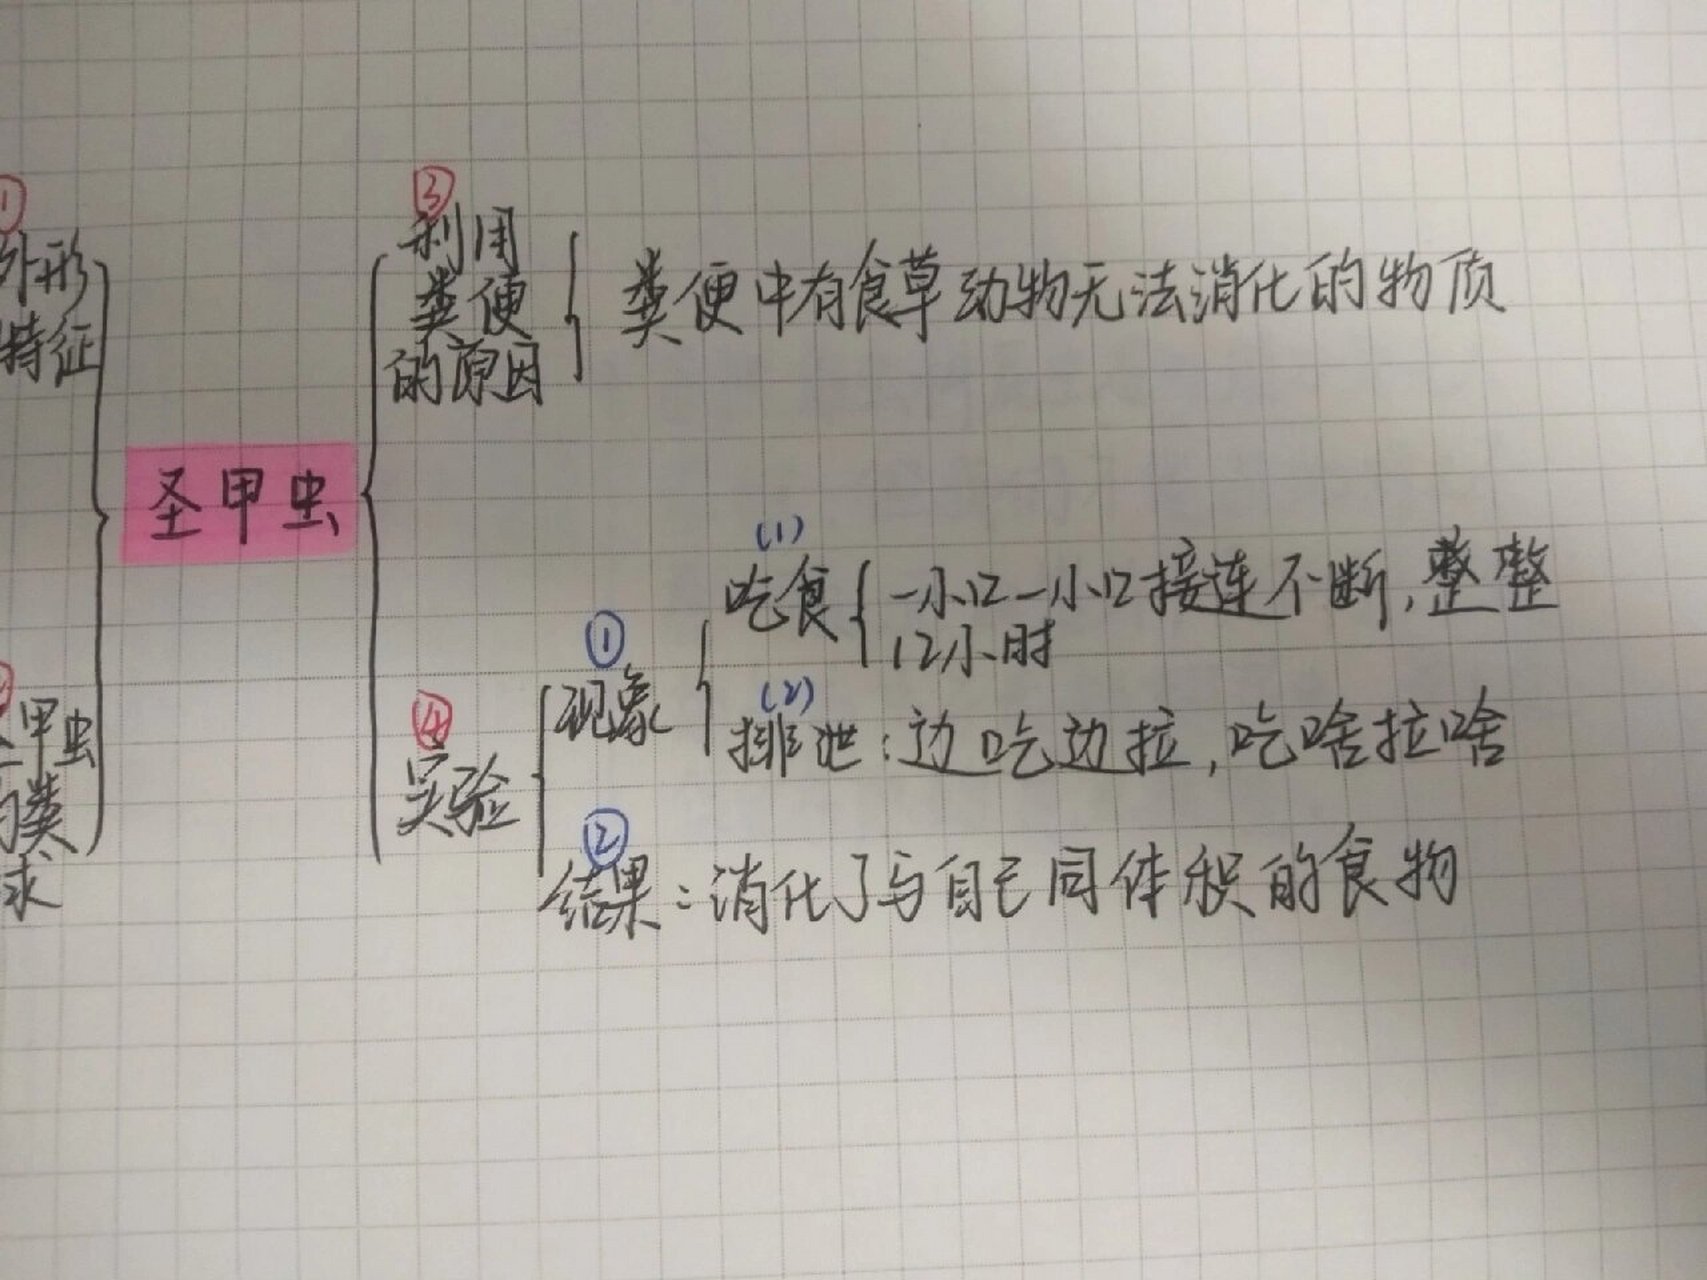 ①
外形
特征
甲虫
粪
求
圣甲虫
③
利用
粪便
的原因
粪便中有食草动物无法消化的物质
④
实验
①
现象
(1)
吃食
一小口一小口接连不断,整整
12小时
(2)
排泄:边吃边拉,吃啥拉啥
②
结果:消化了与自己同体积的食物